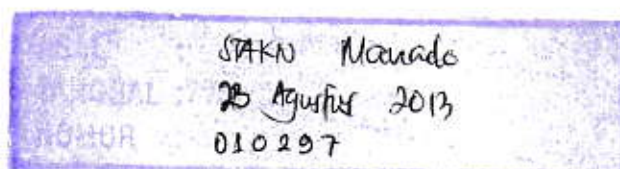 STAKN Manado
TANGGAL : 23 Agustus 2013
NOMOR 010297